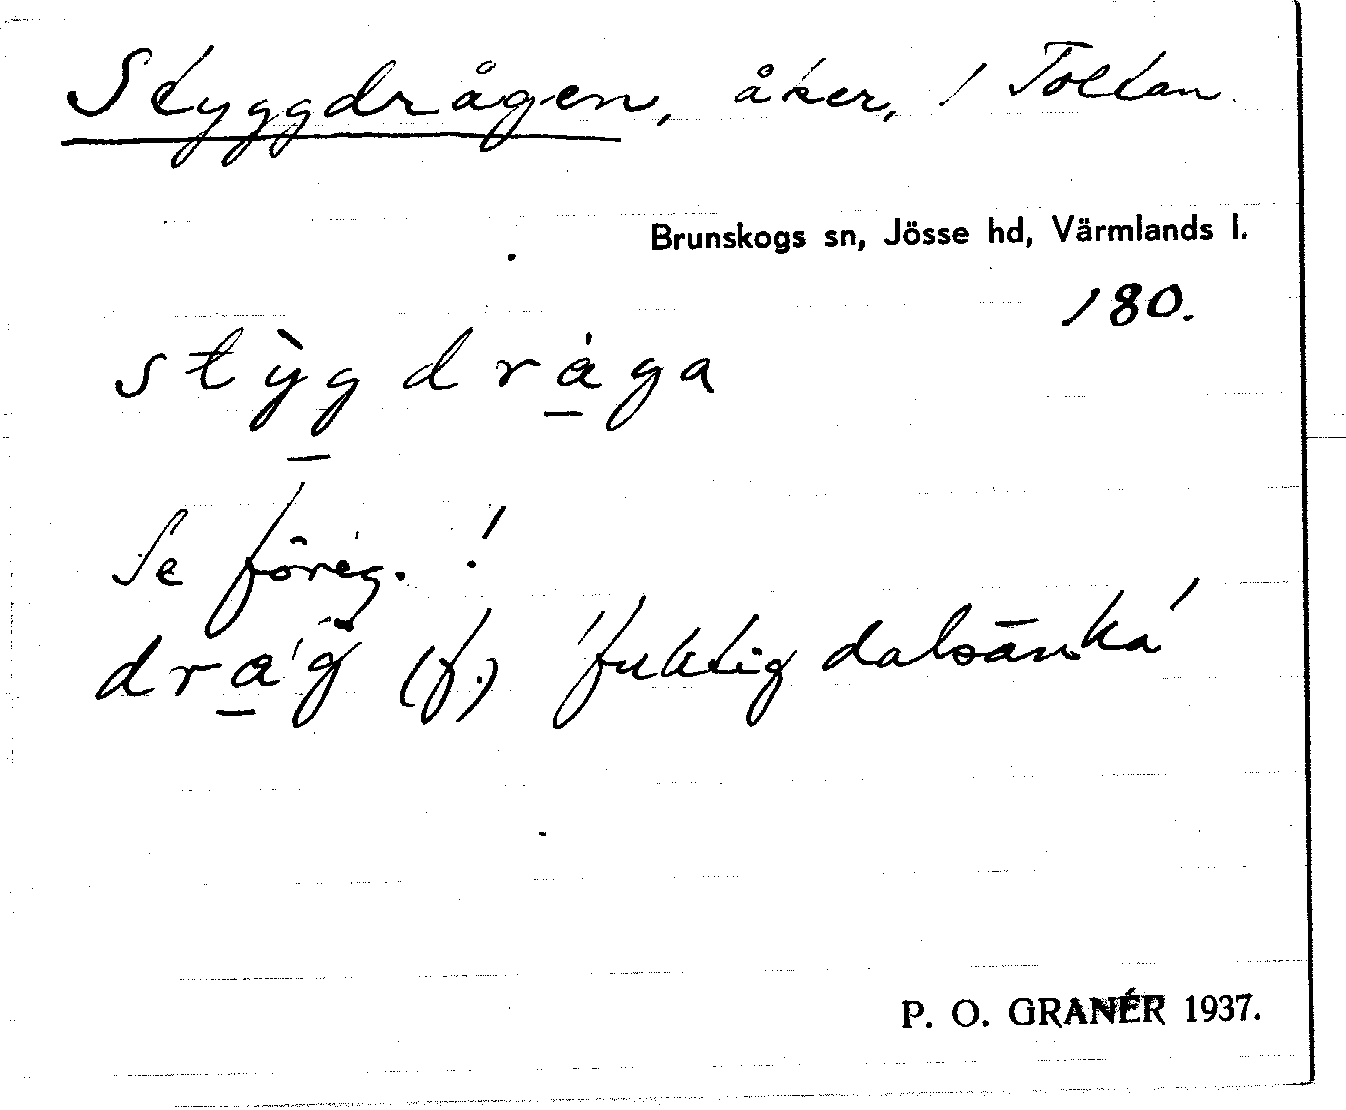 Styggdrågen, åker, / Toltan
Brunskogs sn, Jösse hd, Värmlands l.
180.
stỳgdråga
Se föreg. !
dråg (f.) 'fuktig dalsänka'
P. O. GRANÉR 1937.